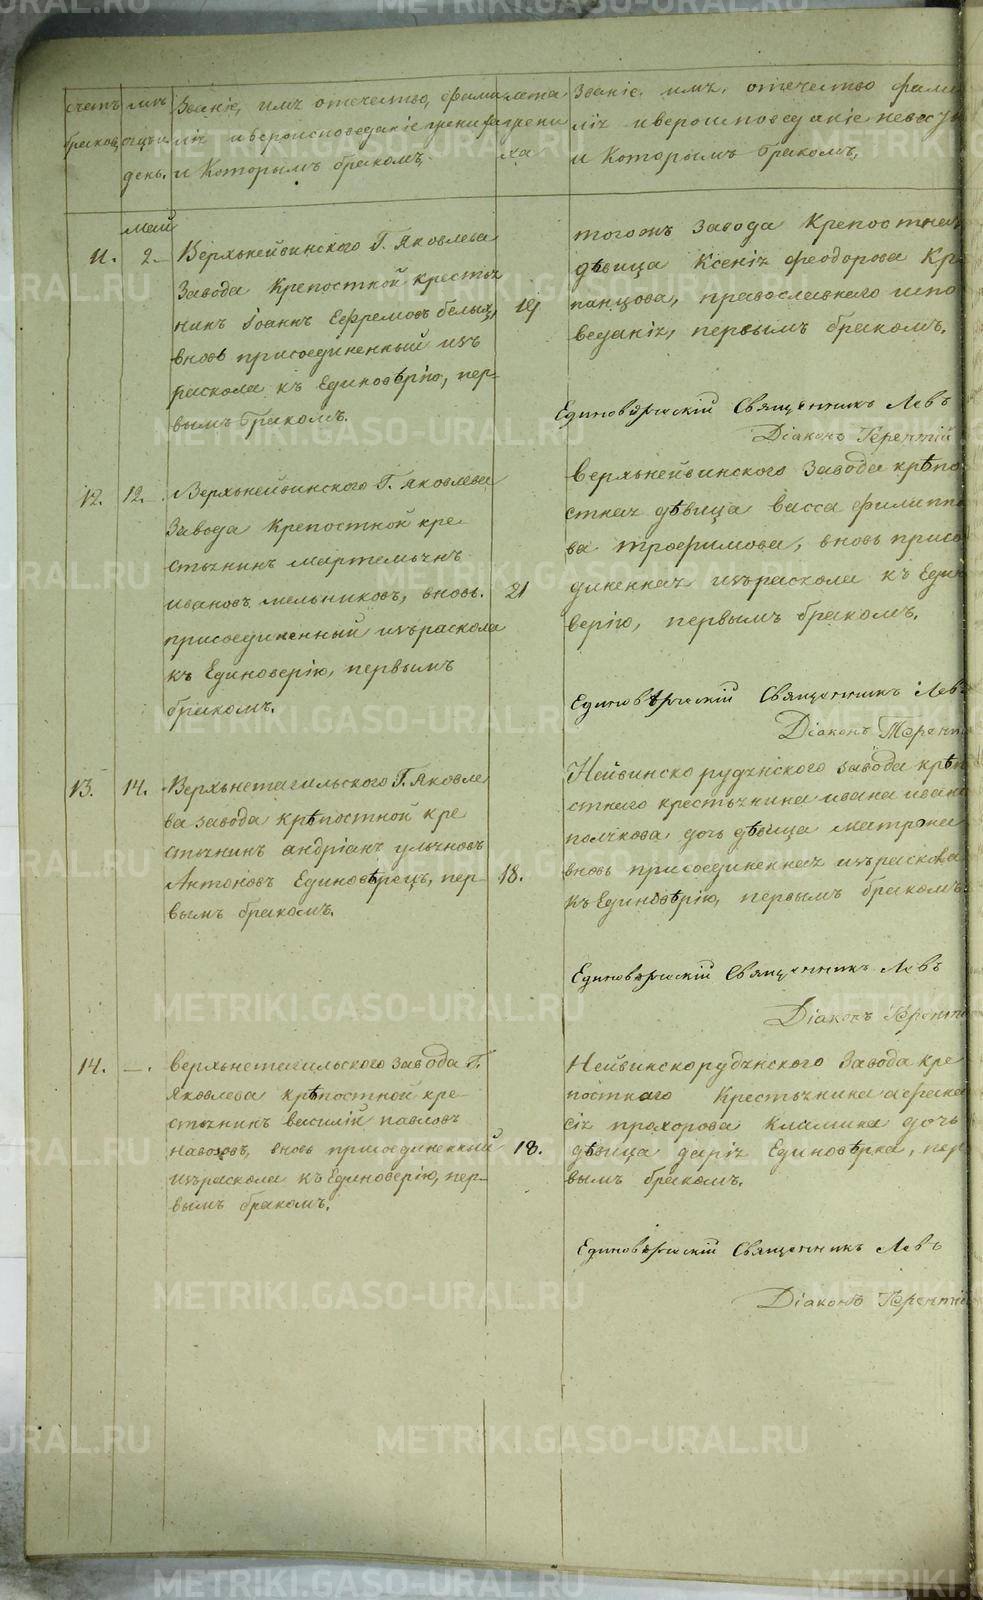 счетъ
браков,
мѣ-
сяцъ и
день.
Званіе, имя отечество, фами-
лія и вероисповеданіе жениха
и Которымъ бракомъ.
лета
жени
ха
Званіе, имя, отечество фами
лія и вероисповеданіе невесты
и Которымъ бракомъ,
Май
11.
2.
Верхънейвинского Г. Яковлева
Завода Крепостной крестья
нинъ Іоаннъ Ефремовъ белыхъ,
вновь присоединенный изъ
раскола къ Единовѣрію, пер-
вымъ бракомъ.
19
тогожъ Завода Крепостная
дѣвица Ксенія феодорова Кр
панцова, православнаго испо
веданія, первымъ бракомъ.
Единовѣрческій Священникъ Левъ
Діаконъ Терентій
12.
12.
Верхънейвинского Г. Яковлева
Завода Крепостной кре
стьянинъ мартемьянъ
ивановъ мельниковъ, вновь
присоединенный изъ раскола
къ Единоверію, первымъ
бракомъ.
21
верхънейвинского Завода крѣпо
стная дѣвица васса филиппо
ва трофимова, вновь присо
диненная изъ раскола къ Един
верію, первымъ бракомъ.
Единовѣрческій Священникъ Левъ
Діаконъ Терентій
13.
14.
Верхънетагильского Г. Яковле
ва завода крѣпостной кре
стьянинъ андріанъ ульяновъ
Антоновъ Единовѣрецъ, пер-
вымъ бракомъ.
18.
Нейвинско рудянского завода крѣп
стнаго крестьянина ивана ивано
полякова дочь дѣвица матрона
вновь присоединенная изъ раскола
къ Единовѣрію, первымъ бракомъ.
Единовѣрческій Священникъ Левъ
Діаконъ Терентій
14.
—.
верхънетагильского завода Г.
Яковлева крѣпостной кре
стьянинъ василій павловъ
навозовъ, вновь присоединенный
изъ раскола къ Единоверію, пер-
вымъ бракомъ.
18.
Нейвинскорудянского Завода кре
постнаго Крестьянина афана
сія прохорова Кламина дочь
дѣвица дарія Единовѣрка, пер
вымъ бракомъ.
Единовѣрческій Священникъ Левъ
Діаконъ Терентій
METRIKI.GASO-URAL.RU